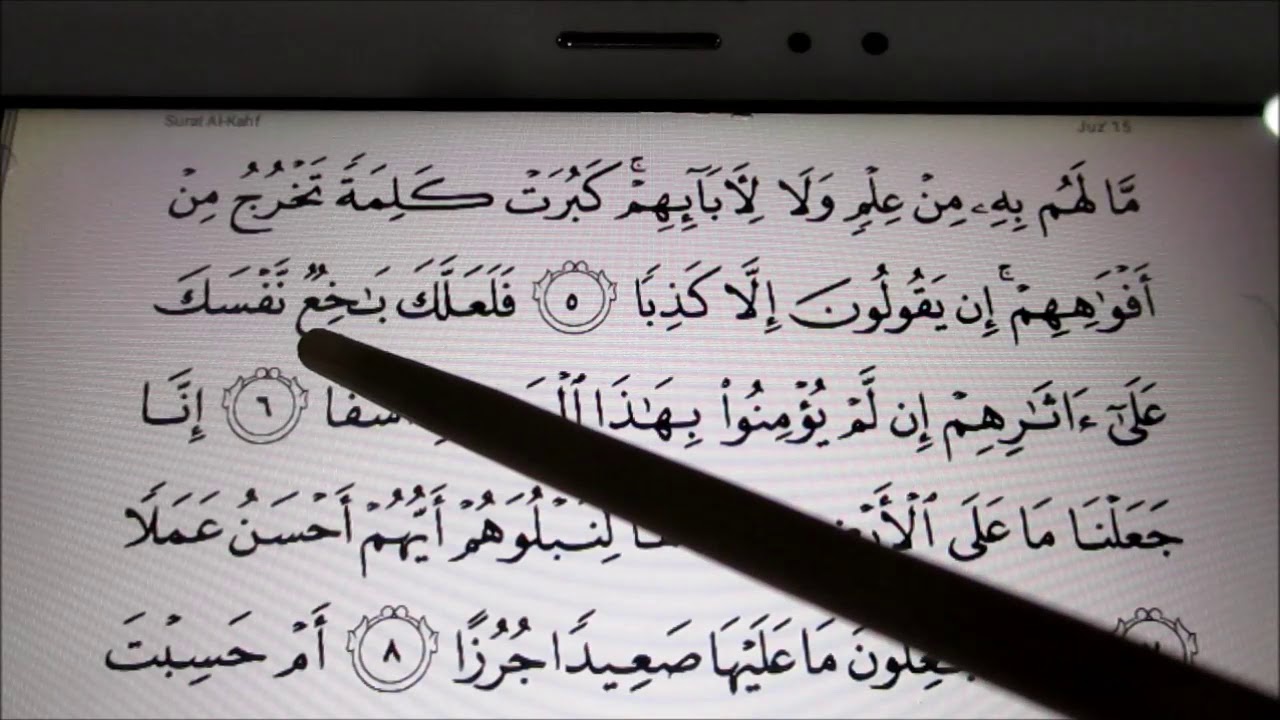 Surat Al-Kahf
Juz 15
مَّا لَهُم بِهِۦ مِنۡ عِلۡمٖ وَلَا لِأٓبَآئِهِمۡۚ كَبُرَتۡ كَلِمَةٗ تَخۡرُجُ مِنۡ
أَفۡوَٰهِهِمۡۚ إِن يَقُولُونَ إِلَّا كَذِبٗا ٥ فَلَعَلَّكَ بَٰخِعٞ نَّفۡسَكَ
عَلَىٰٓ ءَاثَٰرِهِمۡ إِن لَّمۡ يُؤۡمِنُواْ بِهَٰذَا ٦ إِنَّا
جَعَلۡنَا مَا عَلَى ٱلۡأَرۡضِ لِنَبۡلُوَهُمۡ أَيُّهُمۡ أَحۡسَنُ عَمَلٗا
مَا عَلَيۡهَا صَعِيدٗا جُرُزًا ٨ أَمۡ حَسِبۡتَ